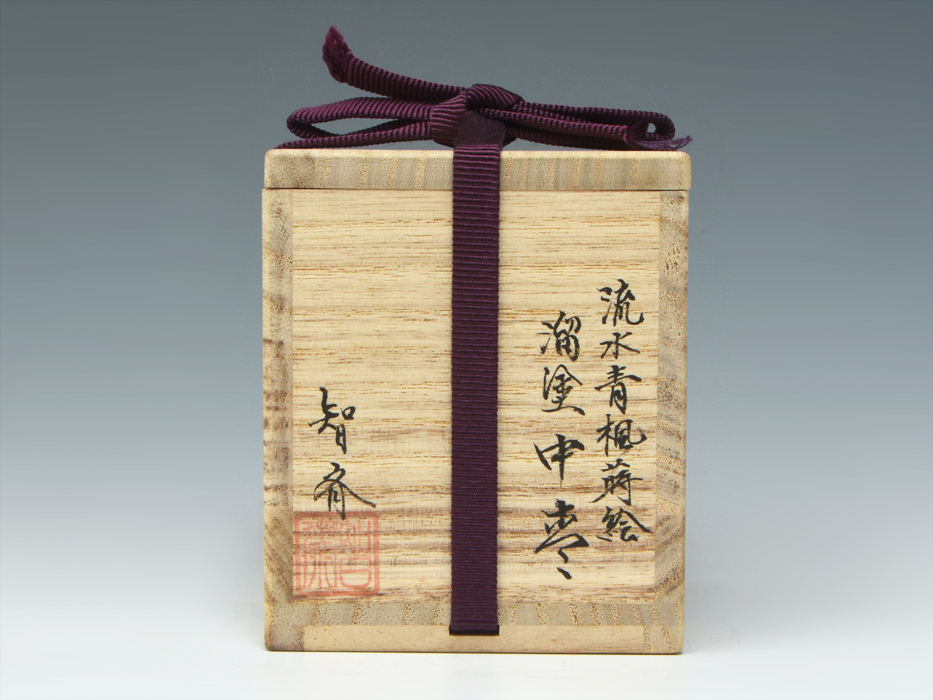 流水青楓蒔絵
溜塗中棗
智斎